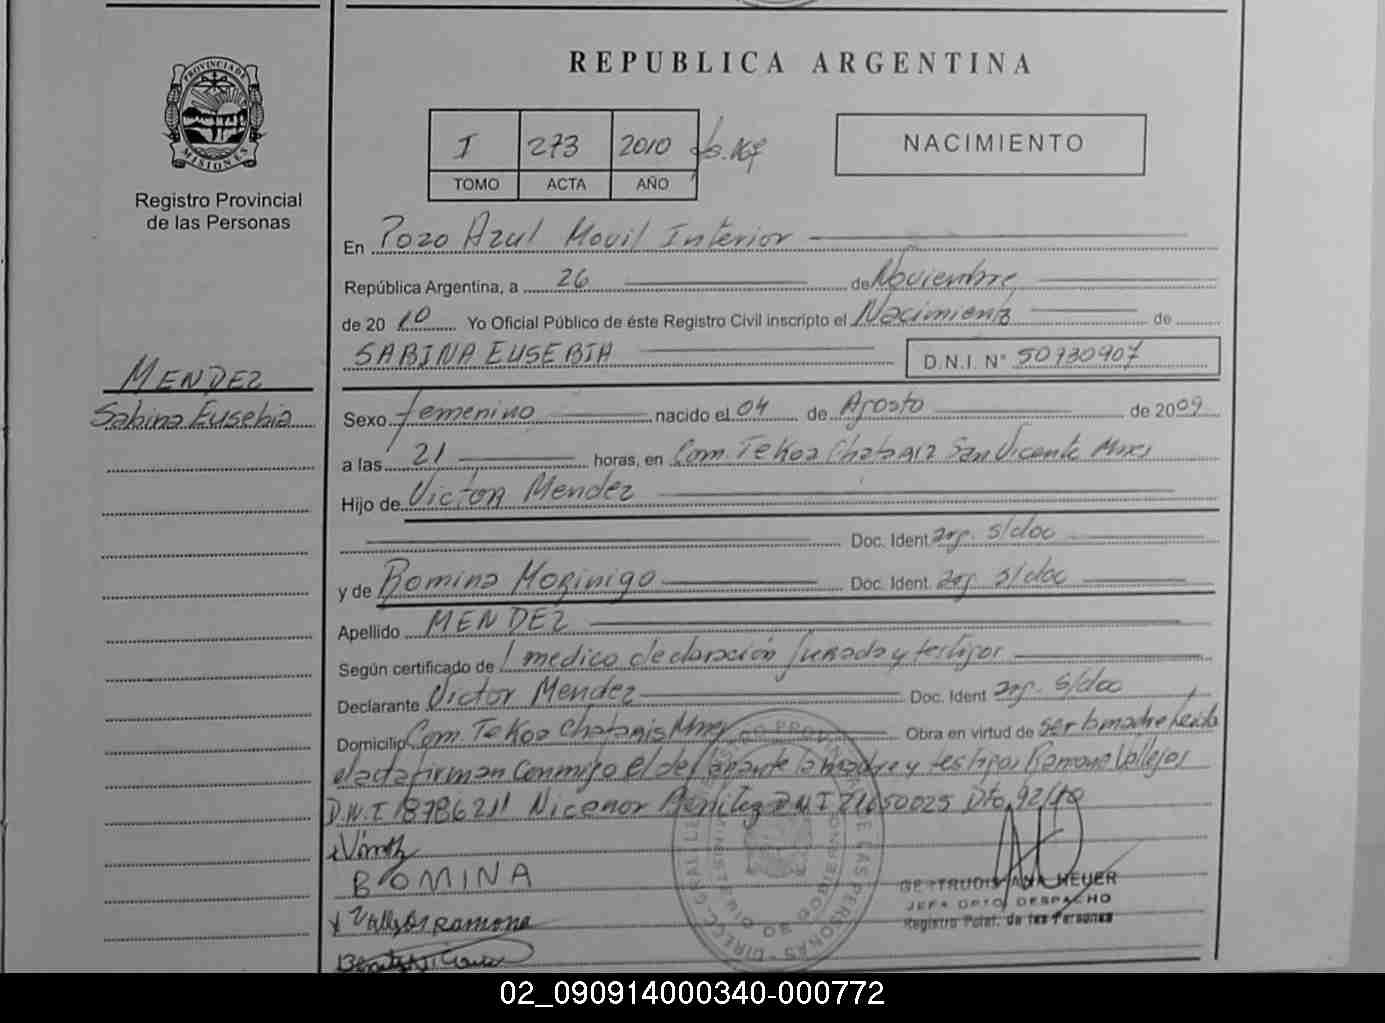 REPUBLICA ARGENTINA
PROVINCIA DE
MISIONES
Registro Provincial
de las Personas
I 273 2010
TOMO ACTA AÑO
NACIMIENTO
En Pozo Azul Movil Interior
República Argentina, a 26 de Noviembre
de 20 10 Yo Oficial Público de éste Registro Civil inscripto el Nacimiento de
SABINA EUSEBIA D.N.I. N° 50930907
MENDEZ
Sabina Eusebia
Sexo femenino nacido el 04 de Agosto de 2009
a las 21 horas, en Com. Tekoa San Vicente Mnes
Hijo de Victor Mendez
Doc. Ident. arg. s/doc
y de Romina Mozinigo Doc. Ident. arg s/doc
Apellido MENDEZ
Según certificado de medico declaración Jurada y testigos
Declarante Victor Mendez Doc. Ident arg. s/doc
Domicilio Com. Tekoa Obra en virtud de ser la madre Leida
el acta firman conmigo el declarante la madre y testigos Ramona Vallejos
D.N.I Nicenor Benitez D.N.I 21650025 Dto. 92/10
BOMINA
x Vallejos Ramona
GERTRUDIS ANA HEUER
JEFA DPTO. DESPACHO
Registro Pcial. de las Personas
02_090914000340-000772